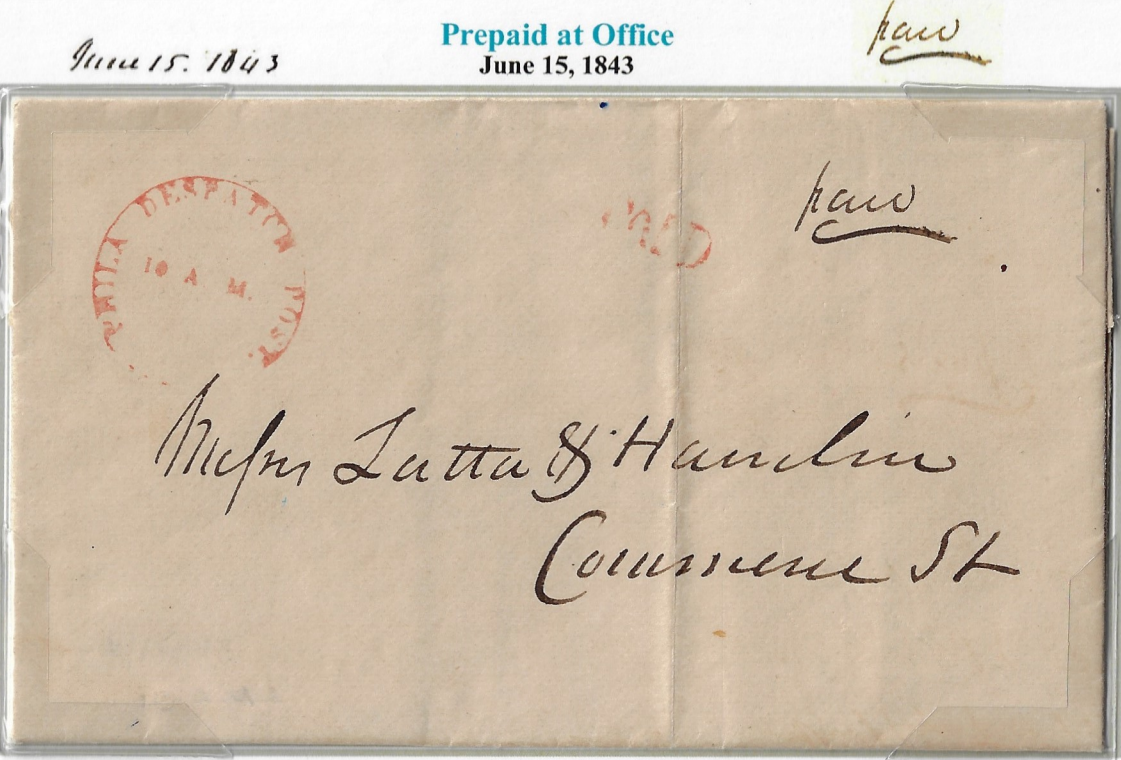 June 15. 1843
Prepaid at Office
June 15, 1843
paid
PHILA DESPATCH POST.
10 A M.
PAID
paid
Messrs Latta & Hamlin
Commerce St